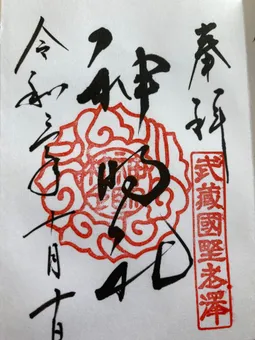 奉拝
武藏國埜老澤
神明社
令和三年十月十日